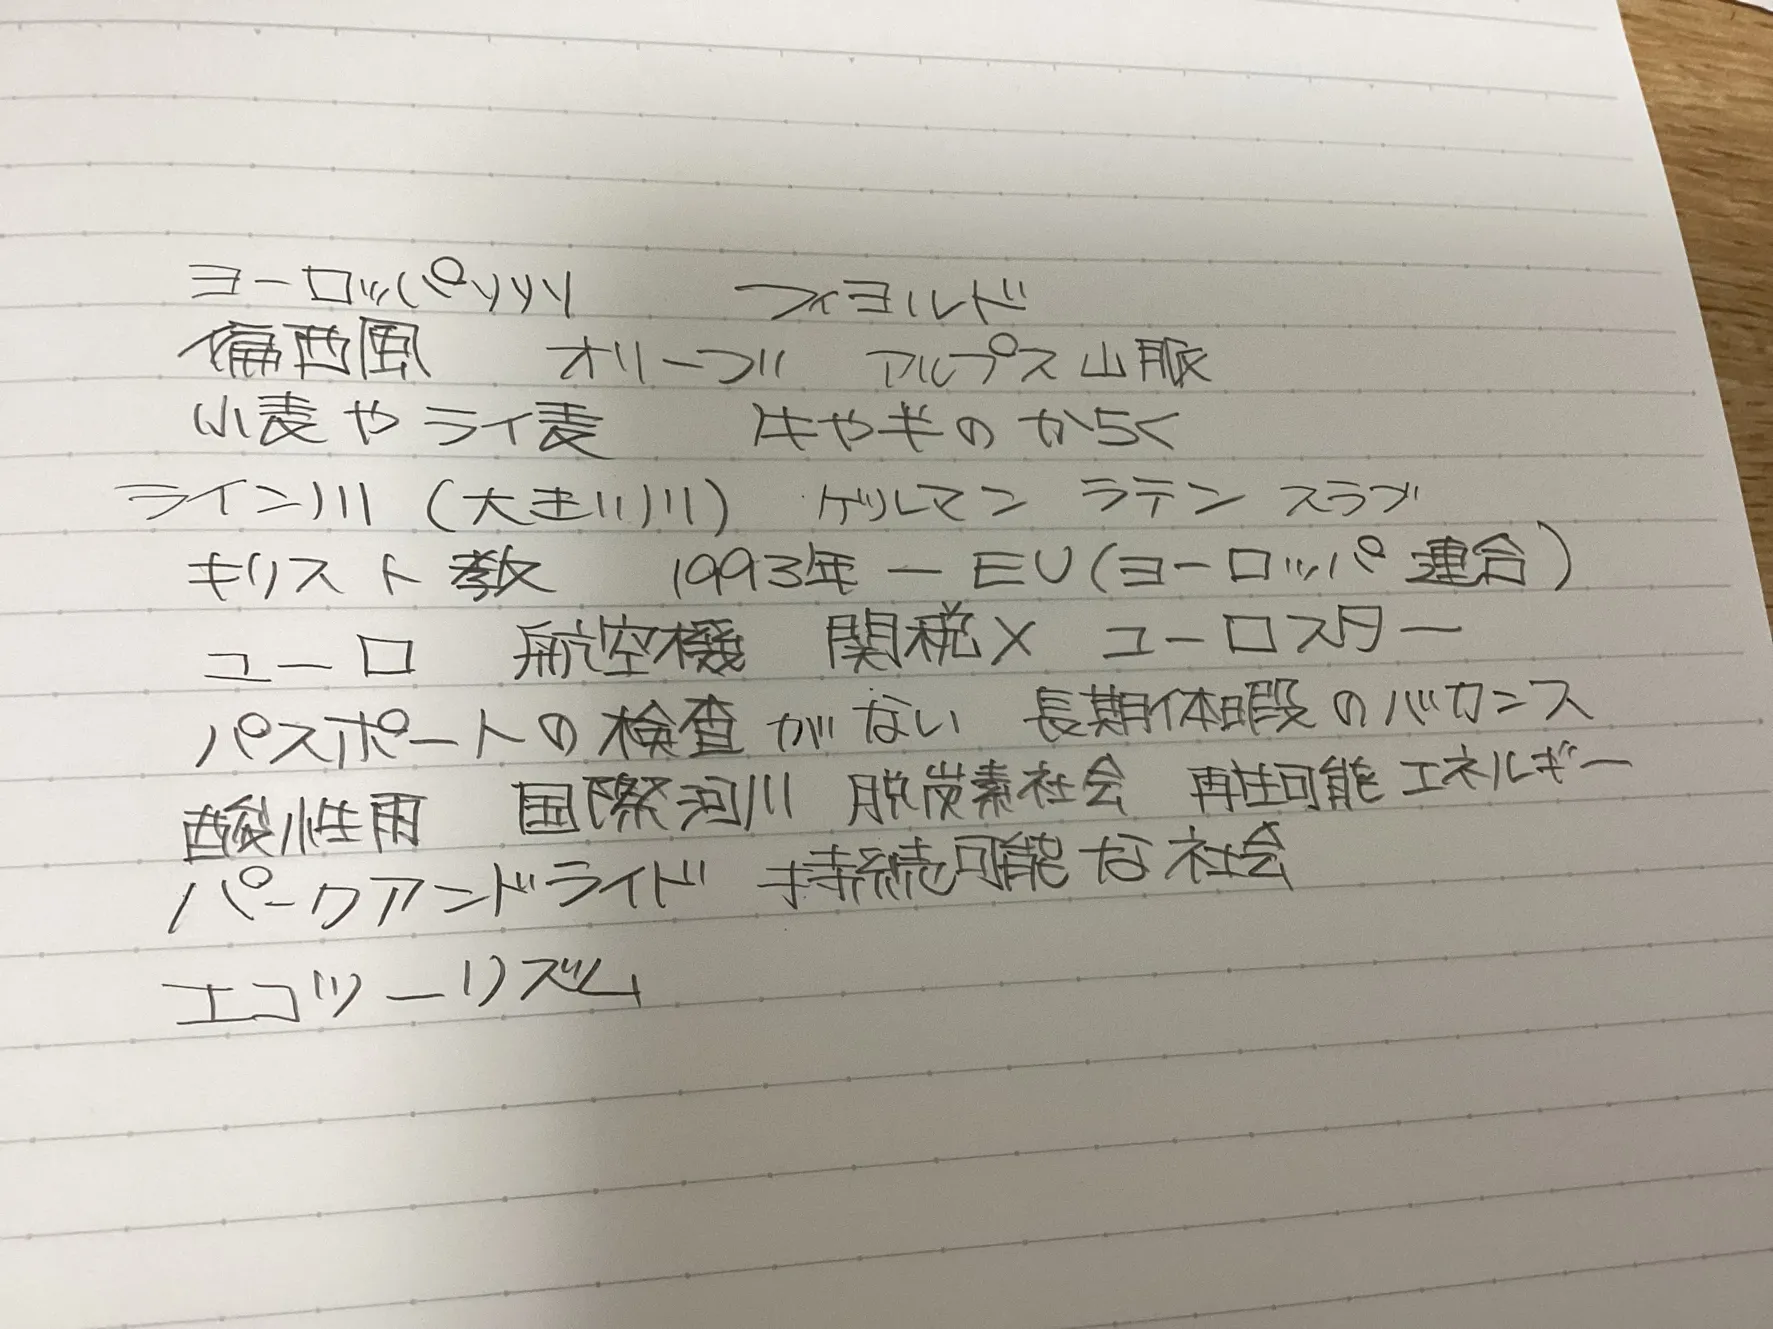 ヨーロッパ州 フィヨルド
偏西風 オリーブ アルプス山脈
小麦やライ麦 牛やギのからく
ライン川 (大きい川) ゲルマン ラテン スラブ
キリスト教 1993年ーEU(ヨーロッパ連合)
ユーロ 航空機 関税× ユーロスター
パスポートの検査がない 長期休暇のバカンス
酸性雨 国際河川 脱炭素社会 再生可能エネルギー
パークアンドライド 持続可能な社会
エコツーリズム